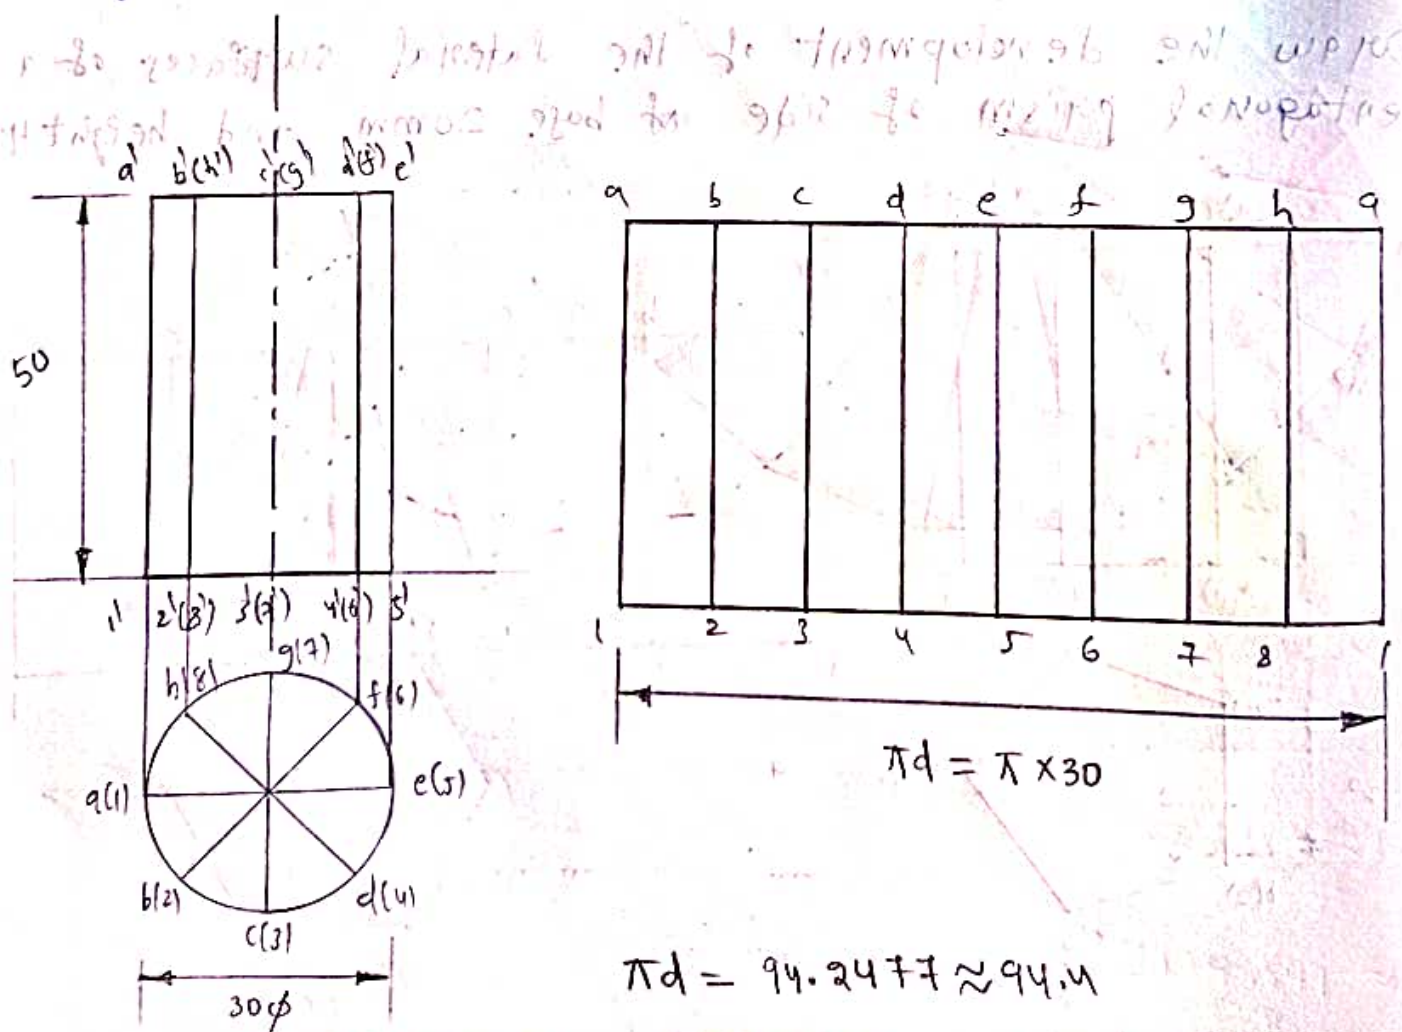 a' b'(h') c'(g') d'(f') e'
50
1' 2'(8') 3'(7') 4'(6') 5'
g(7)
h(8) f(6)
a(1) e(5)
b(2) d(4)
c(3)
30φ
a b c d e f g h a
1 2 3 4 5 6 7 8 1
πd = π×30
πd = 94.2477 ≈ 94.4